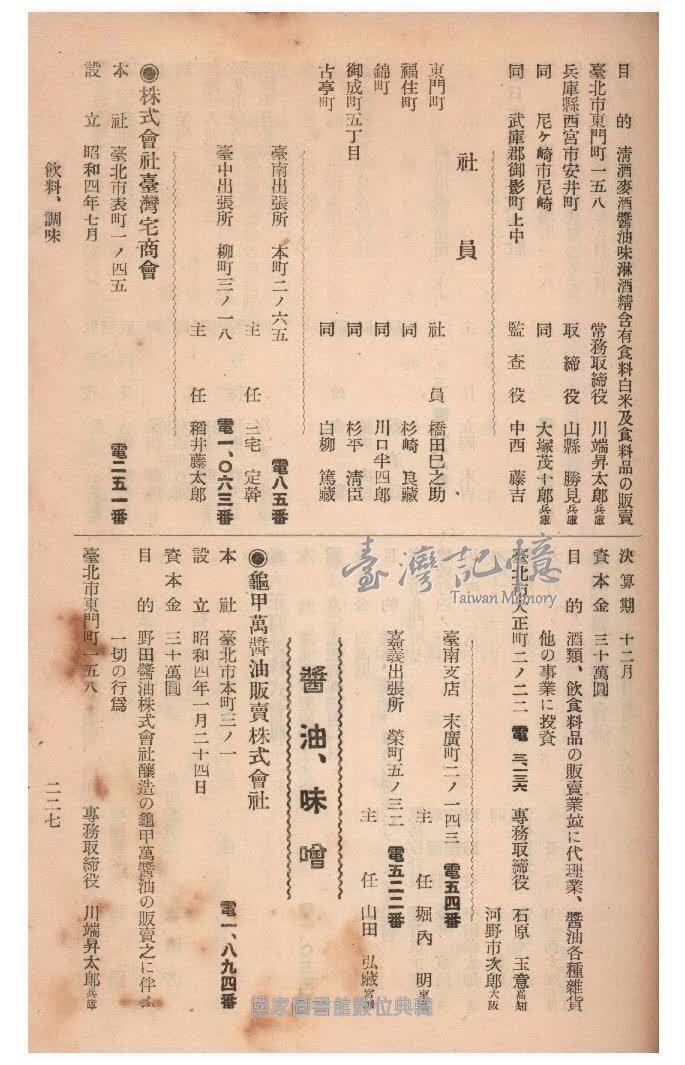 目的 清酒麥酒醬油味淋酒精含有食料白米及食料品の販賣
臺北市東門町一五八 常務取締役 川端昇太郎 兵庫
兵庫縣西宮市安井町 取締役 山縣勝見 兵庫
同 尼ケ崎市尼崎 同 大塚茂十郎 兵庫
同 武庫郡御影町上中 監査役 中西藤吉
社員
東門町 社員 橋田巳之助
福住町 同 杉崎良藏
錦町 同 川口半四郎
御成町五丁目 同 杉平清臣
古亭町 同 白柳篤藏
臺南出張所 本町二ノ六五 電八五番
主任 三宅定幹
臺中出張所 柳町三ノ一八 電一、〇六三番
主任 稻井藤太郎
◉株式會社臺灣宅商會
本社 臺北市表町一ノ四五 電二五一番
設立 昭和四年七月
飲料、調味
決算期 十二月
資本金 三十萬圓
目的 酒類、飲食料品の販賣業竝に代理業、醬油各種雜貨
他の事業に投資
臺北市大正町二ノ二二 電三、二三六 專務取締役 石原玉意 高知
河野市次郎 大阪
臺南支店 末廣町二ノ一四三 電五四番
主任 堀內明
嘉義出張所 榮町五ノ三二 電五二二番
主任 山田弘藏
醬油、味噌
◉龜甲萬醬油販賣株式會社
本社 臺北市本町三ノ一 電一、八九四番
設立 昭和四年一月二十四日
資本金 三十萬圓
目的 野田醬油株式會社釀造の龜甲萬醬油の販賣之に伴ふ
一切の行爲
臺北市東門町一五八 專務取締役 川端昇太郎 兵庫
二二七
臺灣記憶
Taiwan Memory
國家圖書館數位典藏